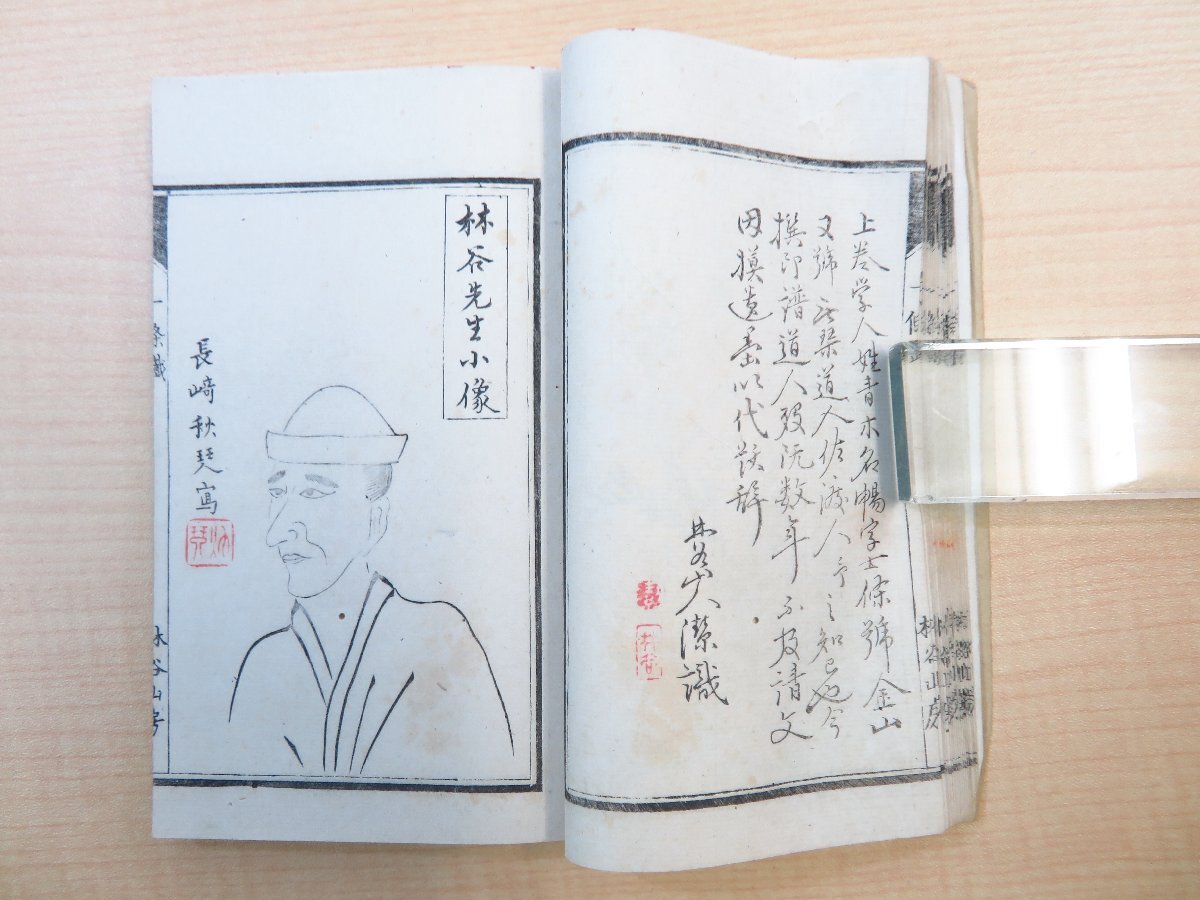 上巻学人姓青木名暢字士條號金山
又號 琴道人佐渡人予之知己也今
撰印譜道人歿既数年不及請文
因摸遺墨以代跋辞
林谷山人潔識
林谷山房
林谷先生小像
長﨑秋琹寫
林谷山房